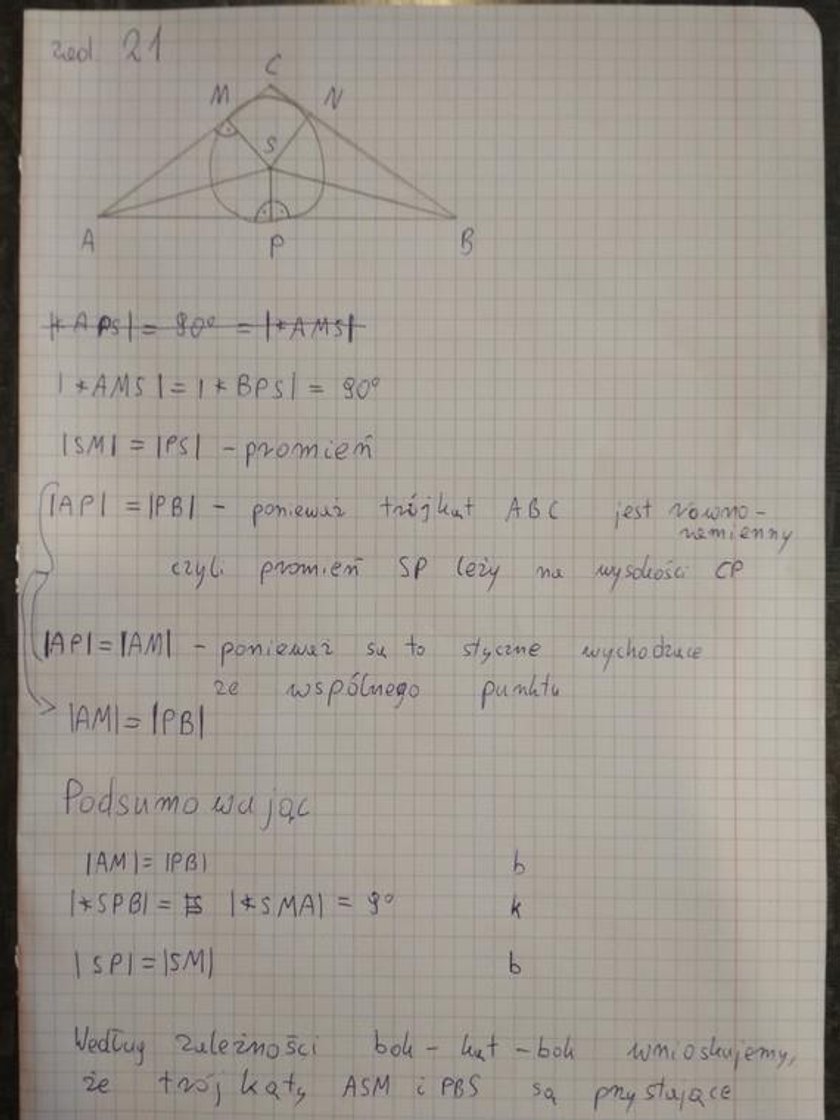 zad. 21
C
M
N
S
A
P
B
|∢APS| = 90° = |∢AMS|
|∢AMS| = |∢BPS| = 90°
|SM| = |PS| - promień
|AP| = |PB| - ponieważ trójkąt ABC jest równo-
ramienny
czyli promień SP leży na wysokości CP
|AP| = |AM| - ponieważ są to styczne wychodzące
ze wspólnego punktu
|AM| = |PB|
Podsumowując
|AM| = |PB| b
|∢SPB| = |∢SMA| = 9° k
|SP| = |SM| b
Według zależności bok - kąt - bok wnioskujemy,
że trójkąty ASM i PBS są przystające